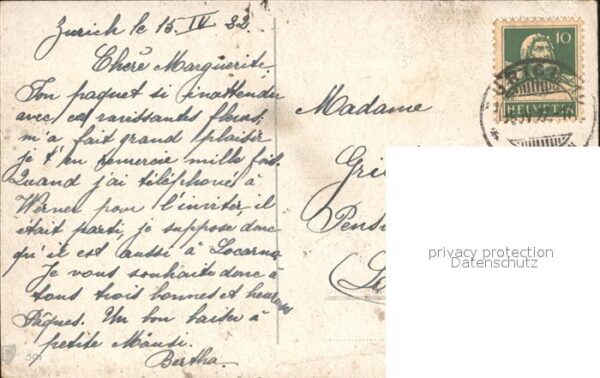 Zurich le 15. IV 22.
Chère Marguerite
Ton paquet si inattendu
avec ces ravissantes fleurs,
m'a fait grand plaisir
je t'en remercie mille fois.
Quand j'ai téléphoné à
Werner pour l'inviter, il
était parti, je suppose donc
qu'il est aussi à Locarno
Je vous souhaite donc à
tous trois bonnes et heureuses
Pâques. Un bon baiser à
petite Mausi.
Bertha.
Madame
Pensi
10
HELVETIA
privacy protection
Datenschutz